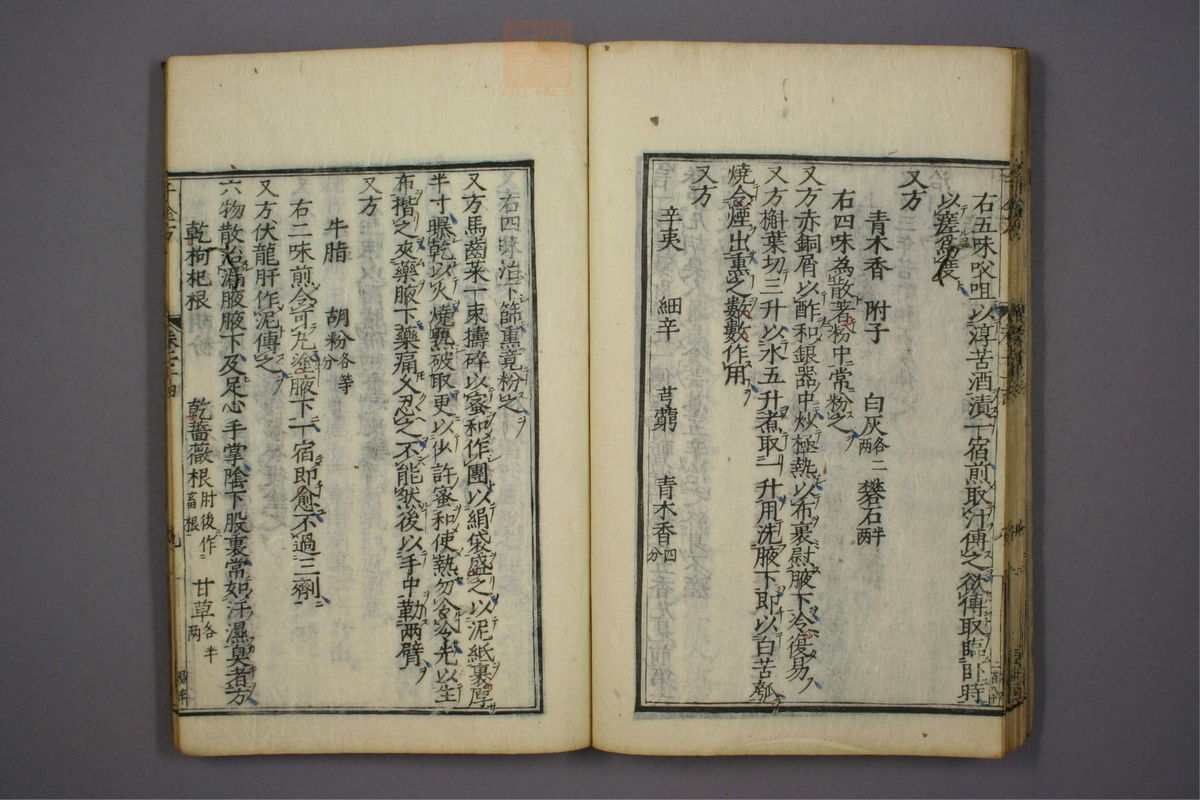 右五味㕮咀以淳苦酒漬一宿煎取汁傅之欲傅取臨臥時
以瘥為度
又方
青木香 附子 白灰各二兩 礬石半兩
右四味為散著粉中常粉之
又方赤銅屑以酢和銀器中炒極熱以布裹慰腋下冷復易
又方槲葉切三升以水五升煮取一升用洗腋下即以白苦瓠
燒令煙出熏之數數作用
又方
辛夷 細辛 芎藭 青木香四分
右四味治下篩熏竟粉之
又方馬齒菜一束擣碎以蜜和作團以絹袋盛之以泥紙裹厚
半寸曝乾以火燒熟破取更以少許蜜和使熱勿令冷先以生
布揩之夾藥腋下藥痛久忍之不能然後以手巾勒兩臂
又方
牛脂 胡粉各等分
右二味煎令可丸塗腋下一宿即愈不過三劑
又方伏龍肝作泥傅之
六物散治漏腋腋下及足心手掌陰下股裏常如汗濕臭者方
乾枸杞根 乾薔薇根肘後作畜根 甘草各半兩